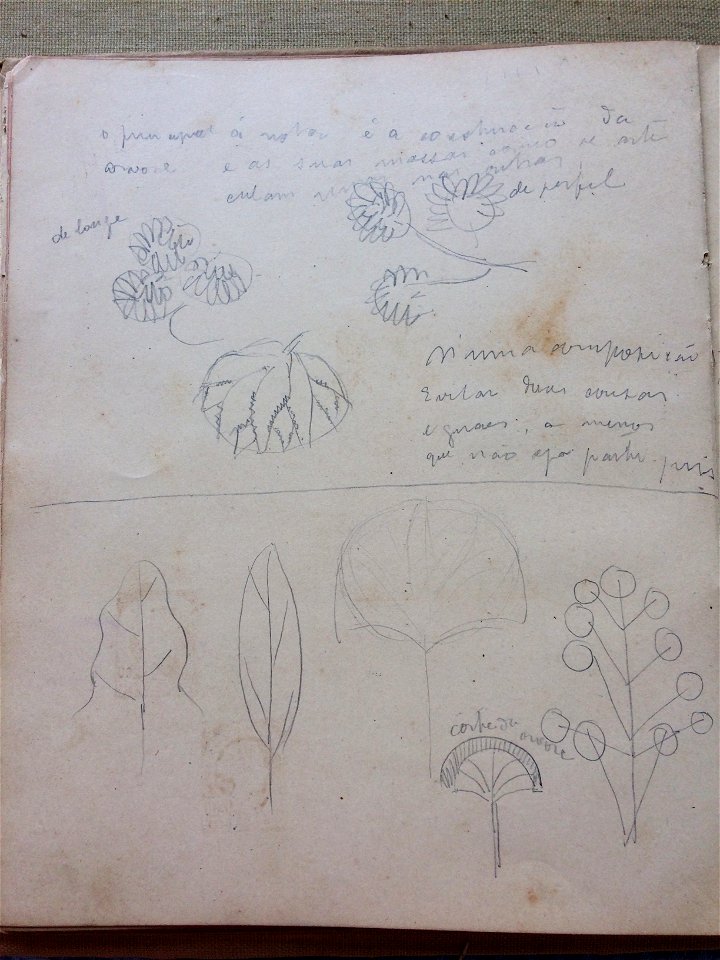 o principal á notar é a construcção da
arvore e as suas massas como se arti
culam umas nas outras
de perfil
de longe
N'uma composição
Evitar duas cousas
eguaes, a menos
que não seja parti-pris
corte da
arvore